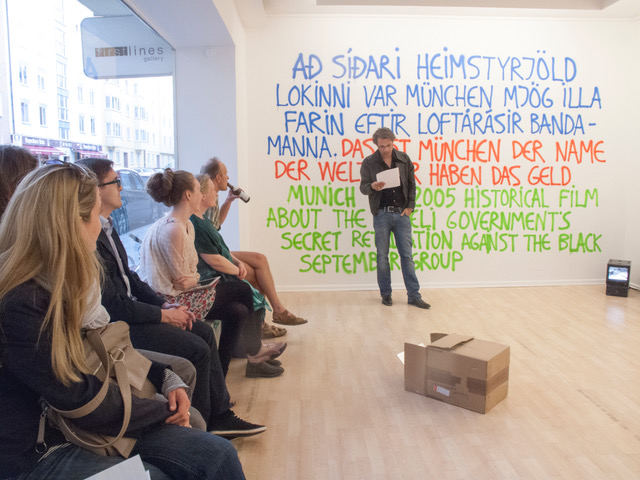 firstlines
gallery
AÐ SÍÐARI HEIMSTYRJÖLD
LOKINNI VAR MÜNCHEN MJÖG ILLA
FARIN EFTIR LOFTÁRÁSIR BANDA-
MANNA. DAS IST MÜNCHEN DER NAME
DER WELT HABEN DAS GELD.
MUNICH 2005 HISTORICAL FILM
ABOUT THE GOVERNMENT'S
SECRET AGAINST THE BLACK
SEPTEMBER GROUP